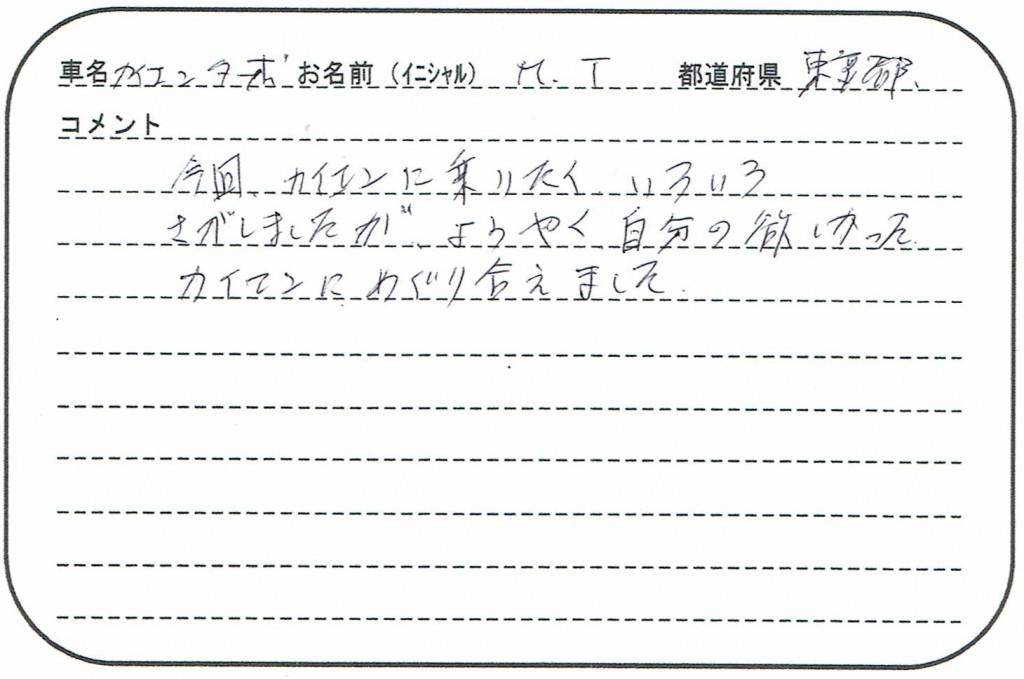 車名 カイエンターボ お名前（イニシャル） M. T 都道府県 東京都
コメント
今回、カイエンに乗りたく、いろいろ
さがしましたが、ようやく自分の欲しかった
カイエンにめぐり合えました。